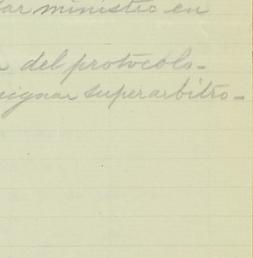 ar ministro en
del protocolo-
signar superarbitro-